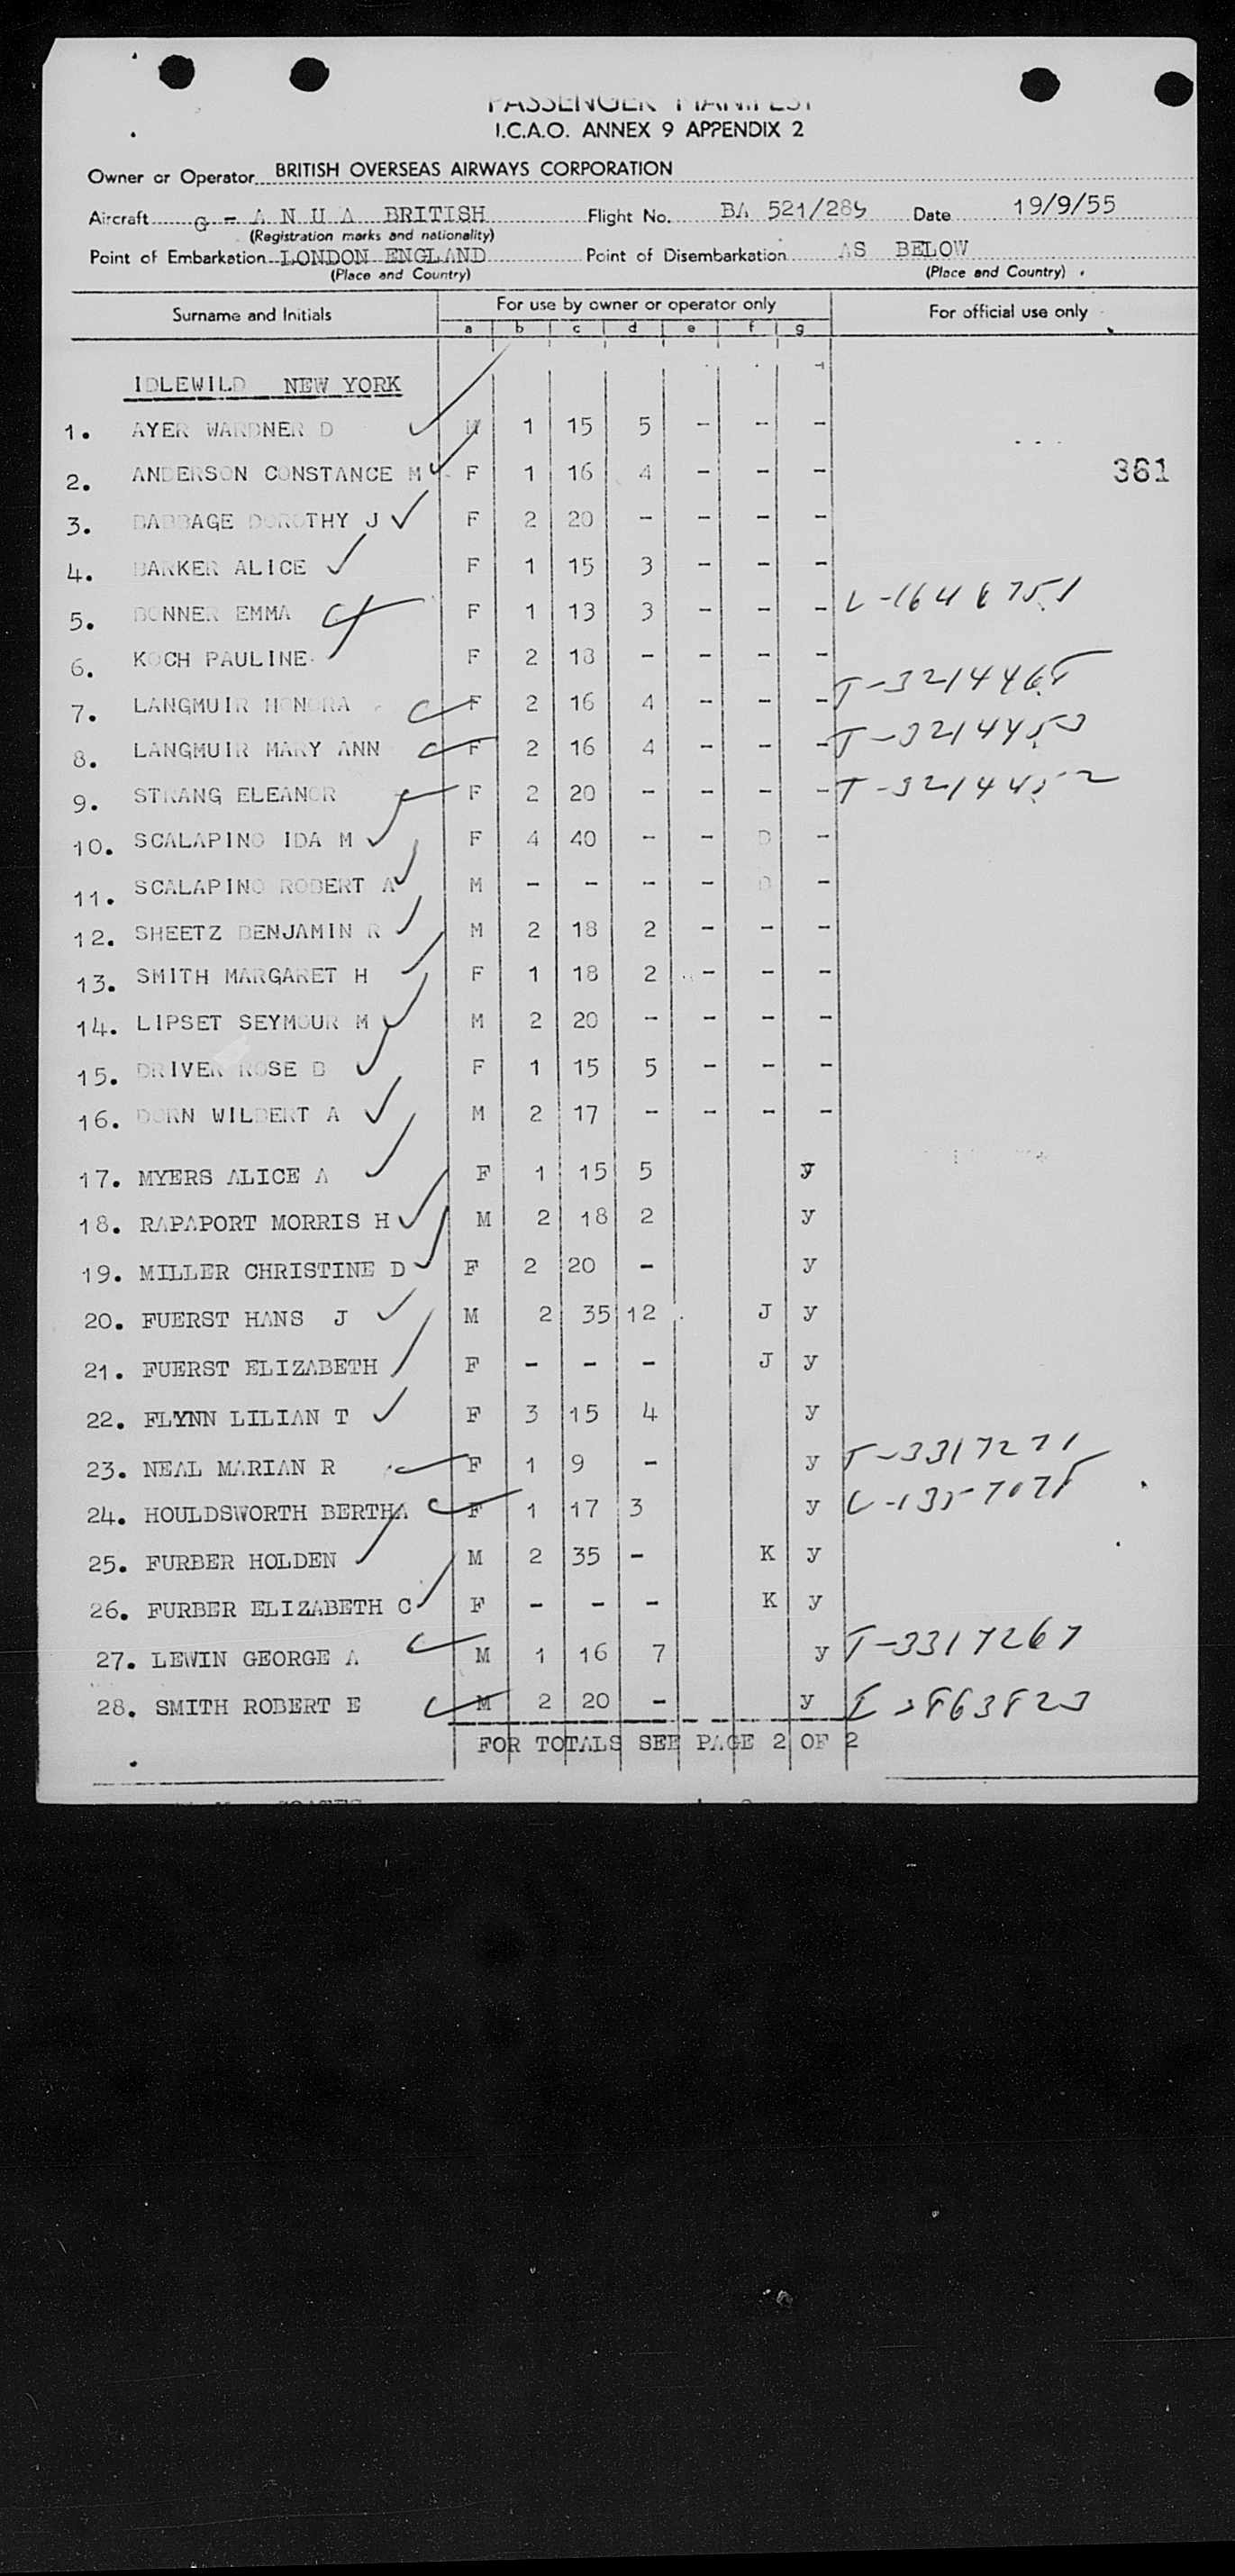 PASSENGER MANIFEST
I.C.A.O. ANNEX 9 APPENDIX 2
Owner or Operator BRITISH OVERSEAS AIRWAYS CORPORATION
Aircraft G - A N U A BRITISH Flight No. BA 521/289 Date 19/9/55
(Registration marks and nationality)
Point of Embarkation LONDON ENGLAND Point of Disembarkation AS BELOW
(Place and Country) (Place and Country)
Surname and Initials For use by owner or operator only For official use only
a b c d e f g
IDLEWILD NEW YORK
1. AYER WARDNER D M 1 15 5 - - -
2. ANDERSON CONSTANCE M F 1 16 4 - - - 361
3. BABBAGE DOROTHY J F 2 20 - - - -
4. BARKER ALICE F 1 15 3 - - -
5. BONNER EMMA F 1 13 3 - - -
6. KOCH PAULINE F 2 18 - - - -
7. LANGMUIR HONORA F 2 16 4 - - -
8. LANGMUIR MARY ANN F 2 16 4 - - -
9. STRANG ELEANOR F 2 20 - - - - T-3214452
10. SCALAPINO IDA M F 4 40 - - D -
11. SCALAPINO ROBERT A M - - - - D -
12. SHEETZ BENJAMIN R M 2 18 2 - - -
13. SMITH MARGARET H F 1 18 2 - - -
14. LIPSET SEYMOUR M M 2 20 - - - -
15. DRIVER ROSE B F 1 15 5 - - -
16. DORN WILBERT A M 2 17 - - - -
17. MYERS ALICE A F 1 15 5 y
18. RAPAPORT MORRIS H M 2 18 2 y
19. MILLER CHRISTINE D F 2 20 - y
20. FUERST HANS J M 2 35 12 J y
21. FUERST ELIZABETH F - - - J y
22. FLYNN LILIAN T F 3 15 4 y
23. NEAL MARIAN R F 1 9 - y T-3317271
24. HOULDSWORTH BERTHA F 1 17 3 y
25. FURBER HOLDEN M 2 35 - K y
26. FURBER ELIZABETH C F - - - K y
27. LEWIN GEORGE A M 1 16 7 y T-3317267
28. SMITH ROBERT E M 2 20 - y
FOR TOTALS SEE PAGE 2 OF 2